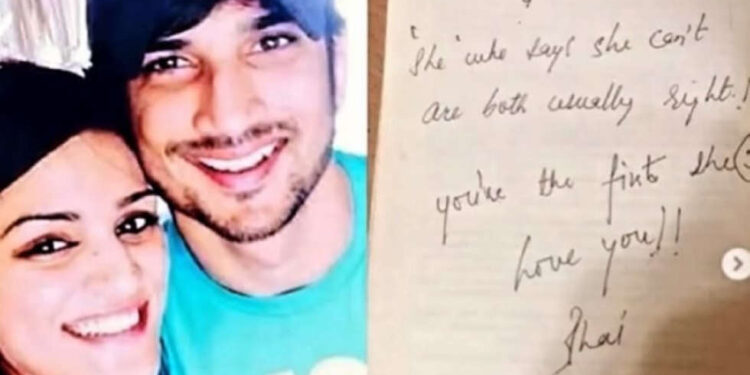 'She' who says she can't
are both usually right.!
you're the first she
Love you!!
Bhai